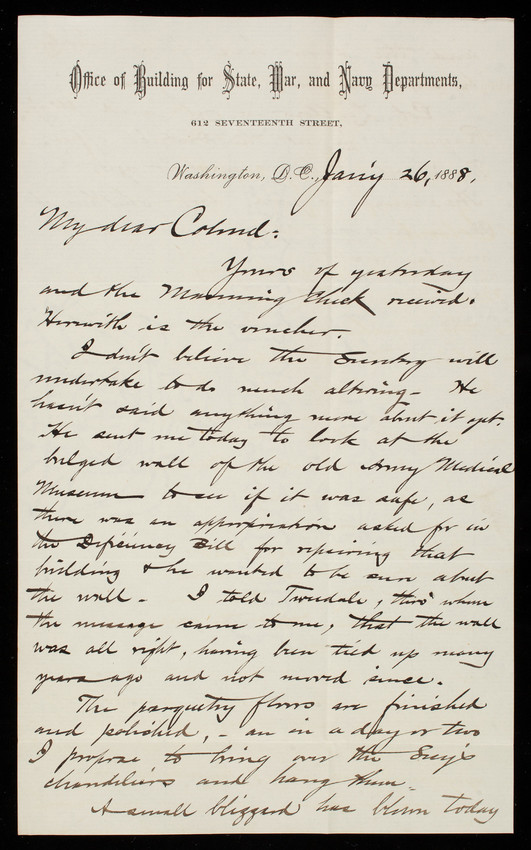 Office of Building for State, War, and Navy Departments,
612 SEVENTEENTH STREET,
Washington, D.C., Jan'y 26, 1888.
My dear Colonel:
Yours of yesterday
and the Manning check received.
Herewith is the voucher.
I don't believe the Secretary will
undertake to do much altering - He
hasn't said anything more about it yet.
He sent me today to look at the
bulged wall of the old Army Medical
Museum to see if it was safe, as
there was an appropriation asked for in
the Deficiency Bill for repairing that
building & he wanted to be sure about
the wall - I told Tweedale, thro' whom
the message came to me, that the wall
was all right, having been tied up many
years ago and not moved since.
The parquetry floors are finished
and polished, - an in a day or two
I propose to bring over the Sec'y's
chandeliers and hang them -
A small blizzard has blown today